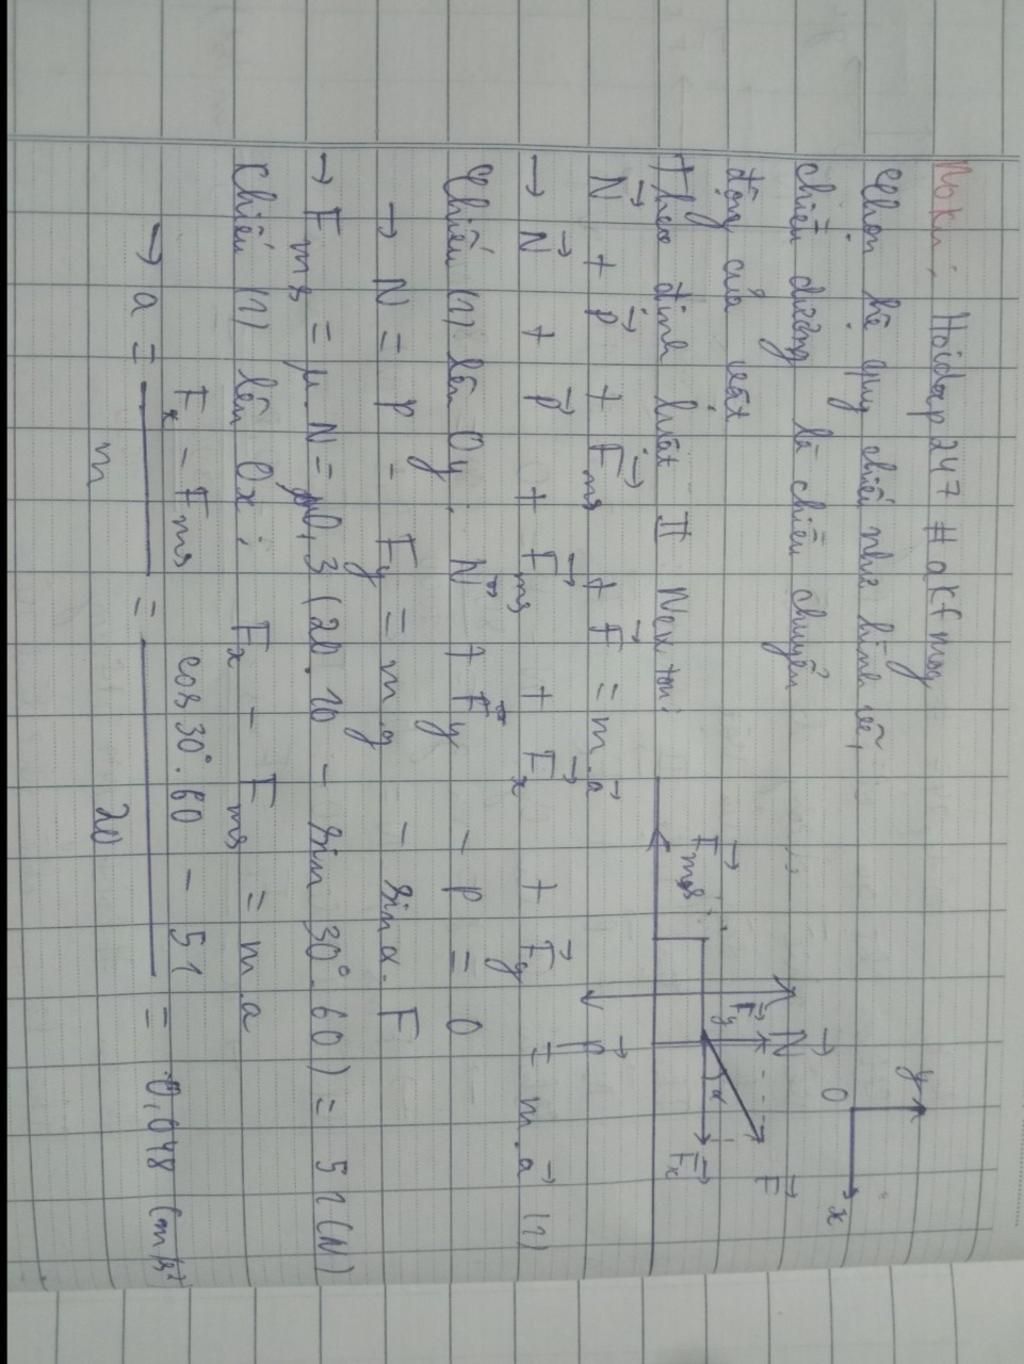 Moku: Hoidap247 #akfmog
Chọn hệ quy chiếu như hình vẽ,
chiều dương là chiều chuyển
động của vật
Theo định luật II Newton:
N⃗ + P⃗ + F⃗ms + F⃗ = m.a⃗
→ N⃗ + P⃗ + F⃗ms + F⃗x + F⃗y = m.a⃗ (1)
Chiếu (1) lên Oy: N + Fy - P = 0
→ N = P - Fy = m.g - sinα.F
→ Fms = μ.N = 0,3 (20.10 - sin 30°.60) = 51 (N)
Chiếu (1) lên Ox: Fx - Fms = m.a
→ a = (Fx - Fms)/m = (cos 30°.60 - 51)/20 = 0,048 (m/s²
y
O
x
N⃗
F⃗y
F⃗
α
F⃗x
F⃗ms
P⃗